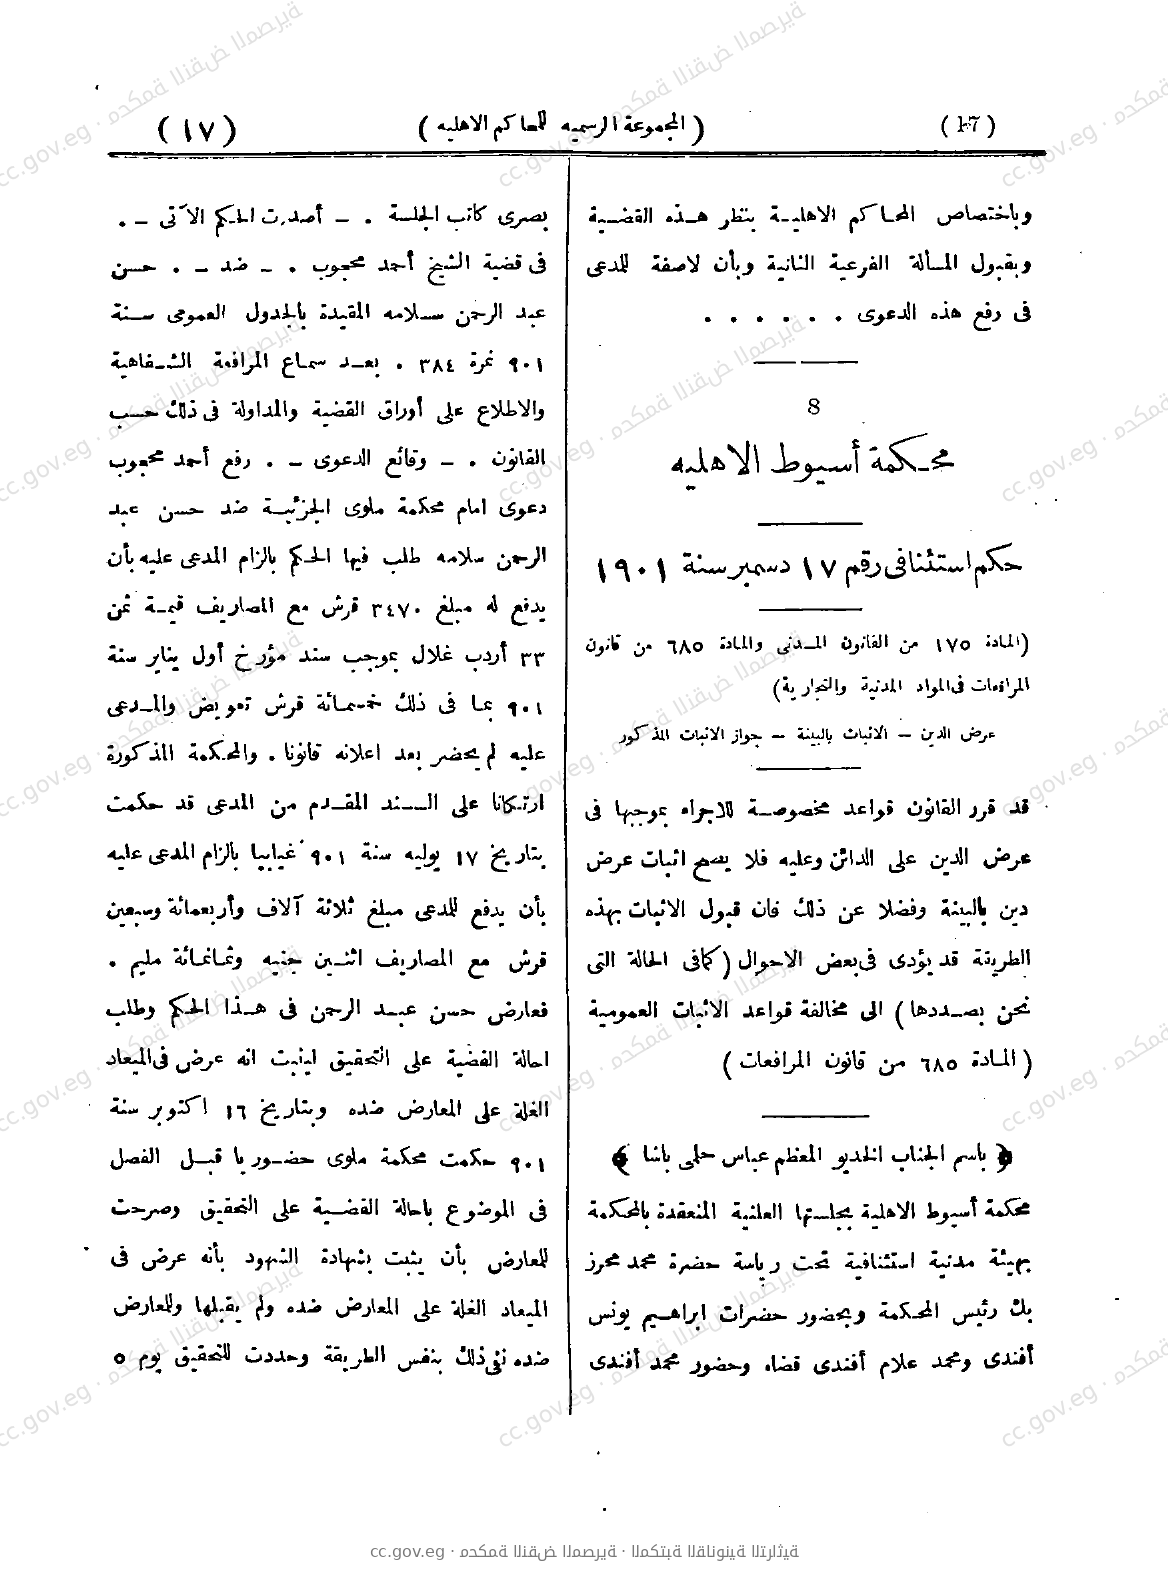 (17)
(المجموعة الرسميه للمحاكم الاهليه)
(١٧)
وباختصاص المحاكم الاهلية بنظر هذه القضية
وبقبول المسألة الفرعية الثانية وبأن لاصفة للمدعى
فى رفع هذه الدعوى . . . . . .
8
محكمة أسيوط الاهليه
حكم استئنافى رقم ١٧ دسمبر سنة ١٩٠١
(المادة ١٧٥ من القانون المدنى والمادة ٦٨٥ من قانون
المرافعات فى المواد المدنية والتجارية)
عرض الدين – الاثبات بالبينة – جواز الاثبات المذكور
قد قرر القانون قواعد مخصوصة للاجراء بموجبها فى
عرض الدين على الدائن وعليه فلا يصح اثبات عرض
دين بالبينة وفضلا عن ذلك فان قبول الاثبات بهذه
الطريقة قد يؤدى فى بعض الاحوال (كما فى الحالة التى
نحن بصددها) الى مخالفة قواعد الاثبات العمومية
(المادة ٦٨٥ من قانون المرافعات)
﴿ باسم الجناب الخديو المعظم عباس حلمى باشا ﴾
محكمة أسيوط الاهلية بجلستها العلنية المنعقدة بالمحكمة
بهيئة مدنية استئنافية تحت رياسة حضرة محمد محرز
بك رئيس المحكمة وبحضور حضرات ابراهيم يونس
أفندى ومحمد علام أفندى قضاه وحضور محمد أفندى
بصرى كاتب الجلسة . – أصدرت الحكم الآتى – .
فى قضية الشيخ أحمد محجوب . – ضد – . حسن
عبد الرحمن سلامه المقيدة بالجدول العمومى سنة
٩٠١ نمرة ٣٨٤ . بعد سماع المرافعة الشفاهية
والاطلاع على أوراق القضية والمداولة فى ذلك حسب
القانون . – وقائع الدعوى – . رفع أحمد محجوب
دعوى امام محكمة ملوى الجزئية ضد حسن عبد
الرحمن سلامه طلب فيها الحكم بالزام المدعى عليه بأن
يدفع له مبلغ ٣٤٧٠ قرش مع المصاريف قيمة ثمن
٣٣ أردب غلال بموجب سند مؤرخ أول يناير سنة
٩٠١ بما فى ذلك خمسمائة قرش تعويض والمدعى
عليه لم يحضر بعد اعلانه قانونا . والمحكمة المذكورة
ارتكانا على السند المقدم من المدعى قد حكمت
بتاريخ ١٧ يوليه سنة ٩٠١ غيابيا بالزام المدعى عليه
بأن يدفع للمدعى مبلغ ثلاثة آلاف وأربعمائة وسبعين
قرش مع المصاريف اثنين جنيه وثمانمائة مليم .
فعارض حسن عبد الرحمن فى هذا الحكم وطلب
احالة القضية على التحقيق ليثبت انه عرض فى الميعاد
الغلة على المعارض ضده وبتاريخ ١٦ اكتوبر سنة
٩٠١ حكمت محكمة ملوى حضوريا قبل الفصل
فى الموضوع باحالة القضية على التحقيق وصرحت
للمعارض بأن يثبت بشهادة الشهود بأنه عرض فى
الميعاد الغلة على المعارض ضده ولم يقبلها وللمعارض
ضده نفى ذلك بنفس الطريقة وحددت للتحقيق يوم ٥
cc.gov.eg · محكمة النقض المصرية · المكتبة القانونية التراثية